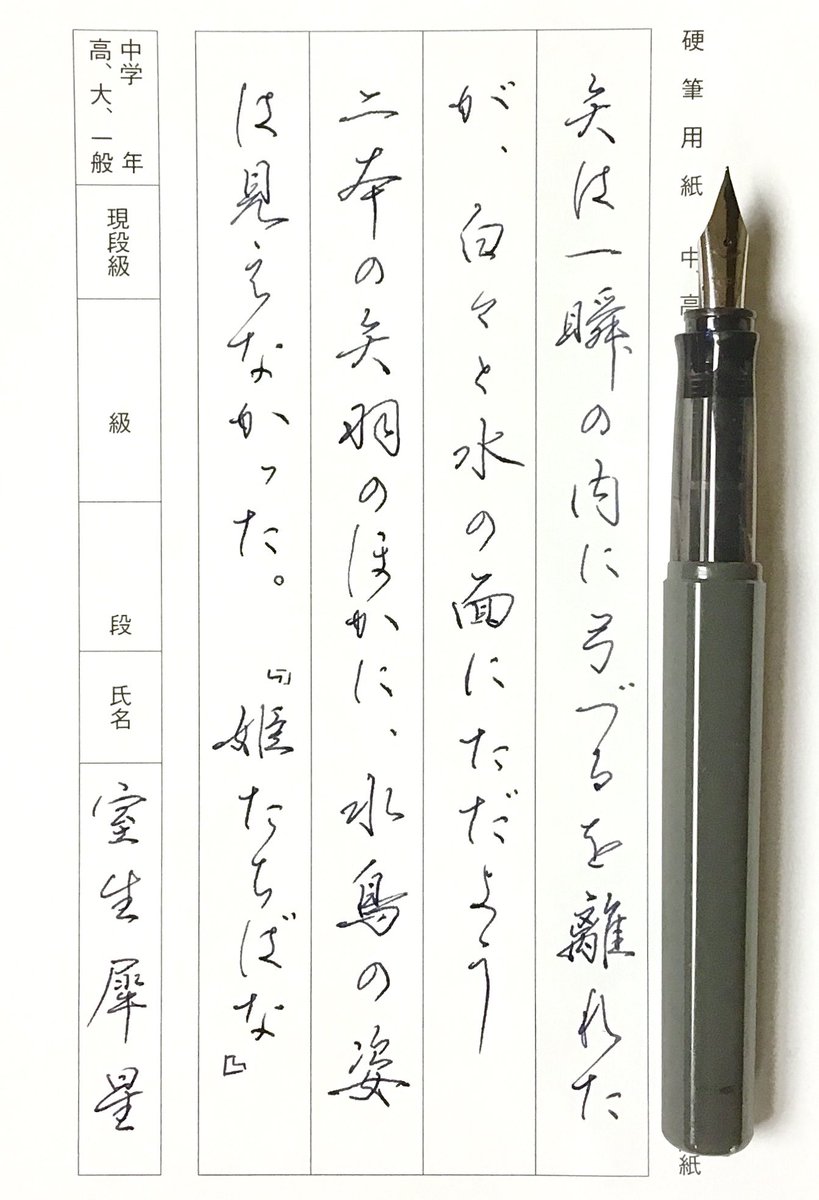 硬筆用紙 中、高
紙
矢は一瞬の内に弓づるを離れた
が、白々と水の面にただよう
二本の矢羽のほかに、水鳥の姿
は見えなかった。 『姫たちばな』
中学 年
高、大、一般
現段級
級
段
氏名
室生犀星